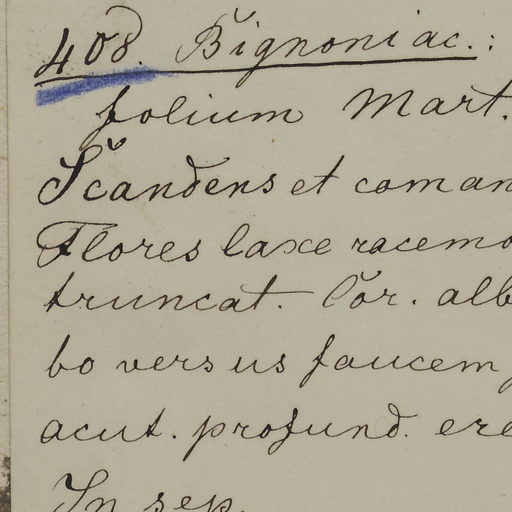 408. Bignoniac.:
folium Mart.
Scandens et coman
Flores laxe racemo
truncat. Cor. alb
bo versus faucem
acut. profund. ere
In sep.